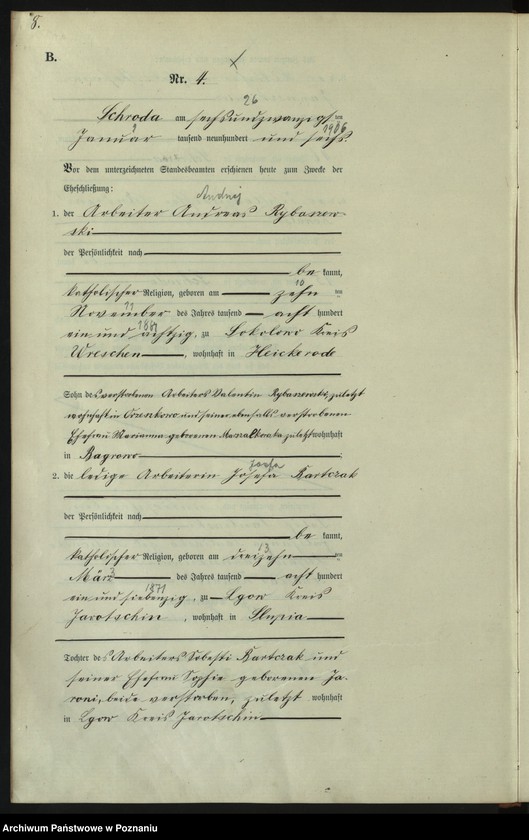 8.
B.
Nr. 4.
26
Schroda am sechsundzwanzigsten
1 1906
Januar tausend neunhundert und sechs.
Vor dem unterzeichneten Standesbeamten erschienen heute zum Zwecke der
Eheschließung:
Andrzej
1. der Arbeiter Andreas Rybarzew-
ski
der Persönlichkeit nach
be kannt,
katholischer Religion, geboren am zehn ten
11 10
November des Jahres tausend acht hundert
1881
ein und achtzig, zu Sokolowo Kreis
Wreschen, wohnhaft in
Sohn des verstorbenen Arbeiters Valentin zuletzt
wohnhaft in und seiner ebenfalls verstorbenen
Ehefrau Marianna geborenen zuletzt wohnhaft
in Bagrowo
Józefa
2. die ledige Arbeiterin Josefa Bartczak
der Persönlichkeit nach
be kannt,
13
katholischer Religion, geboren am dreizehn ten
3
März des Jahres tausend acht hundert
1871
ein und siebenzig, zu Lgow Kreis
Jarotschin, wohnhaft in Slupia
Tochter des Arbeiters Bartczak und
seiner Ehefrau Sophie geborenen Ja-
roni, beide verstorben, zuletzt wohnhaft
in Lgow Kreis Jarotschin
Archiwum Państwowe w Poznaniu